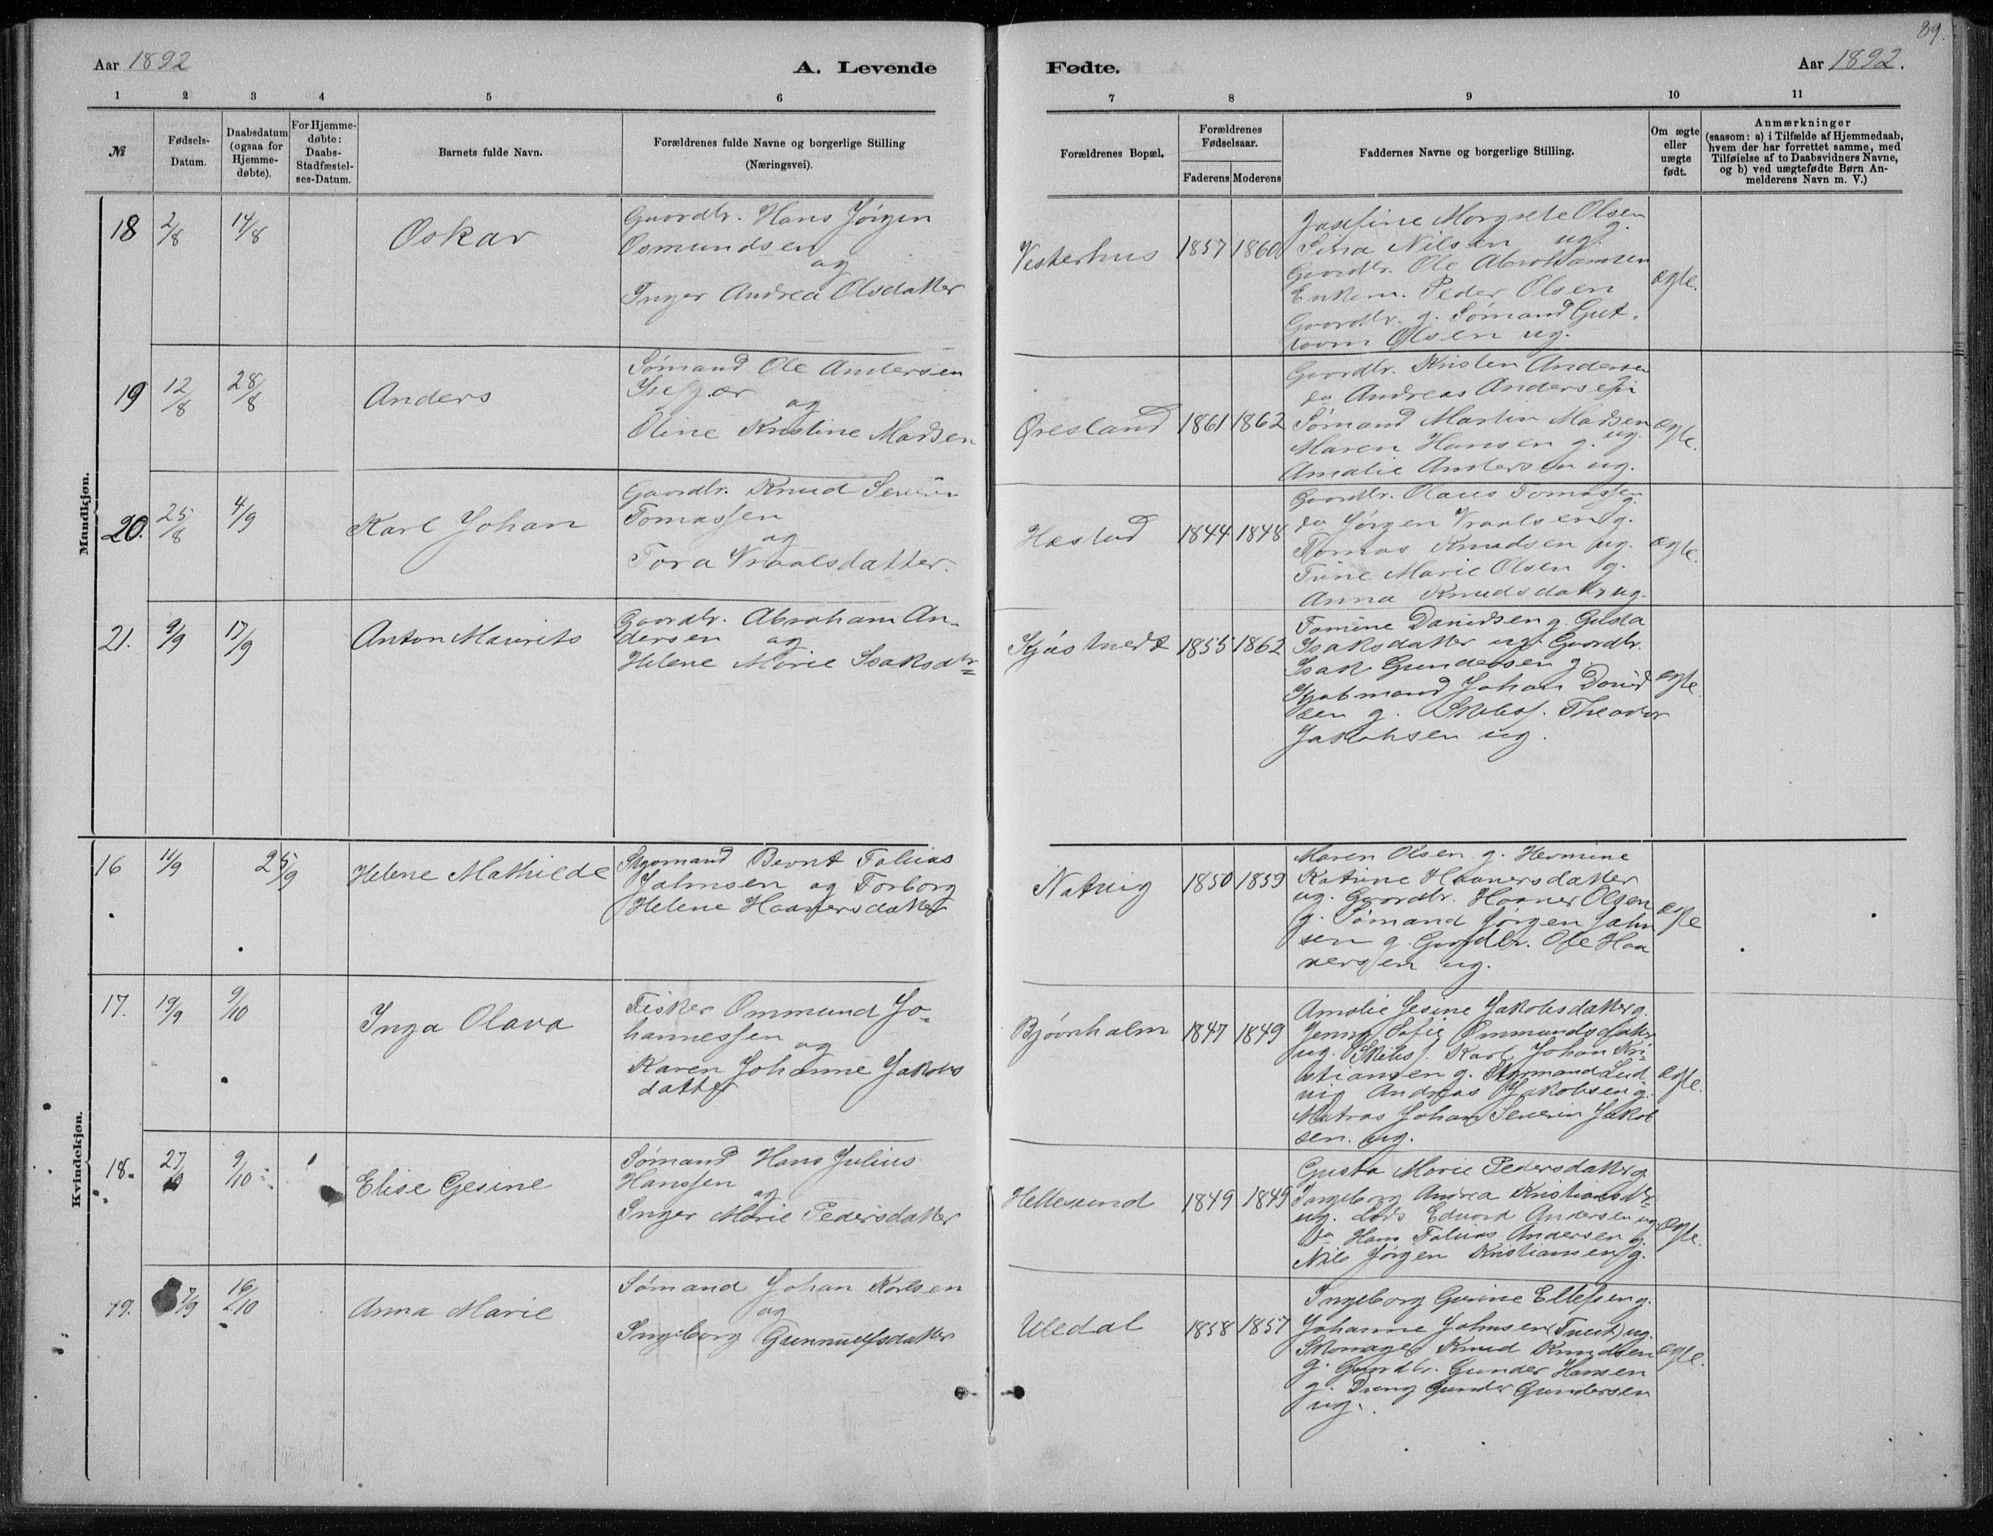 89.
Aar 1892
A. Levende Fødte.
Aar 1892.
1 2 3 4 5 6 7 8 9 10 11
№
Fødsels-
Datum.
Daabsdatum
(ogsaa for
Hjemme-
døbte).
For Hjemme-
døbte:
Daabs-
Stadfæstel-
ses-Datum.
Barnets fulde Navn.
Forældrenes fulde Navne og borgerlige Stilling
(Næringsvei).
Forældrenes Bopæl.
Forældrenes
Fødselsaar.
Faderens Moderens
Faddernes Navne og borgerlige Stilling.
Om ægte
eller
uægte
født.
Anmærkninger
(saasom: a) i Tilfælde af Hjemmedaab,
hvem der har forrettet samme, med
Tilføielse af to Daabsvidners Navne,
og b) ved uægtefødte Børn An-
melderens Navn m. V.)
Mandkjøn.
18 2/8 14/8 Oskar
Gaardbr. Hans Jørgen
Osmundsen
og
Inger Andrea Olsdatter
Vesterhus 1857 1860
Josefine Margrete Olsen
g.
Sina Nilsen ug.
Gaardbr. Ole Abrahamsen
Enkem. Peder Olsen
Gaardbr. g. Sømand Gut-
torm Olsen ug.
ægte.
19 12/8 28/8 Anders
Sømand Ole Andersen
og
Oline Kristine Madsen
Øresland 1861 1862
Gaardbr. Kristen Andersen
do Andreas Andersen
Sømand Martin Madsen
ug.
Maren Hansen g.
Amalie Andersen ug.
ægte.
20. 25/8 4/9 Karl Johan
Gaardbr. Knud Severin
Tomassen
og
Tora Vraalsdatter.
Hæstad 1844 1848
Gaardbr. Olaus Tomassen
g.
do Jørgen Vraalsen g.
Tomas Knudsen ug.
Trine Marie Olsen g.
Anna Knudsdatter ug.
ægte.
21. 9/9 17/9 Anton Maurits
Gaardbr. Abraham An-
dersen og
Helene Marie Isaksdtr
1855 1862
Tomine Danidsen g. Gusta
Isaksdatter ug. Gaardbr.
Isak Gundersen g.
Kjøbmand Johan David
sen g. Skibsf. Theodor
Jakobsen ug.
ægte.
Kvindekjøn.
16 11/9 25/9 Helene Mathilde
Styrmand Bernt Tobias
Johnsen og Torborg
Helene Haaversdatter
Natvig 1850 1859
Maren Olsen g. Hermine
Katrine Haaversdatter
ug. Gaardbr. Haaver Olsen
g. Sømand Jørgen John
sen g. Gaardbr. Ole Haa
versen ug.
ægte
17. 19/9 9/10 Inga Olava
Fisker Ommund Jo-
hannessen
og
Karen Johanne Jakobs
datter
Bjørnholm 1847 1849
Amalie Gesine Jakobsdatter g.
Jenny Sofie Ommundsdatter
ug. Skibsf. Karl Johan Kri-
stiansen g. Styrmand Lud
vig Andreas Jakobsen g.
Matros Johan Severin Jakob
sen. ug.
ægte.
18. 27/9 9/10 Elise Gesine
Sømand Hans Julius
Hanssen
og
Inger Marie Pedersdatter
Hellesund 1849 1849
Gusta Marie Pedersdatter g.
Ingeborg Andrea Kristiansdtr
ug. Lods Edvard Andersen ug
do Hans Tobias Andersen g.
Nils Jørgen Kristiansen g.
ægte.
19. 7/9 16/10 Anna Marie
Sømand Johan Karlsen
og
Ingeborg Gunnulfsdatter
Uledal 1858 1857
Ingeborg Gurine Ellefsen g.
Johanne Johnsen (Tveit) ug.
Skomager Knud Knudsen
g. Gaardbr. Gunder Hansen
g. Dreng Gunder Gundersen
ug.
ægte.